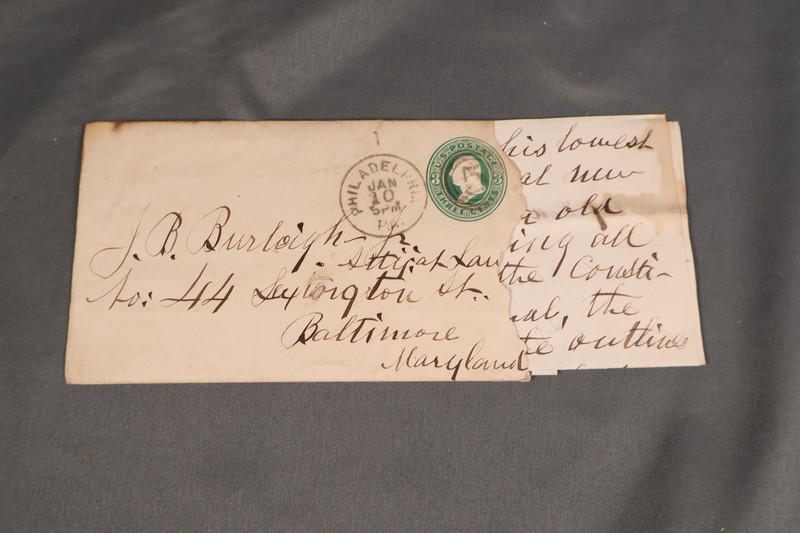 1
PHILADELPHIA
JAN
10
5PM
PA.
U.S. POSTAGE
THREE CENTS
J. B. Burleigh Jr.
Att'y at Law
No: 44 Lexington St.
Baltimore
Maryland
his lowest
at new
old
ing all
the Consti-
nal, the
te outlines